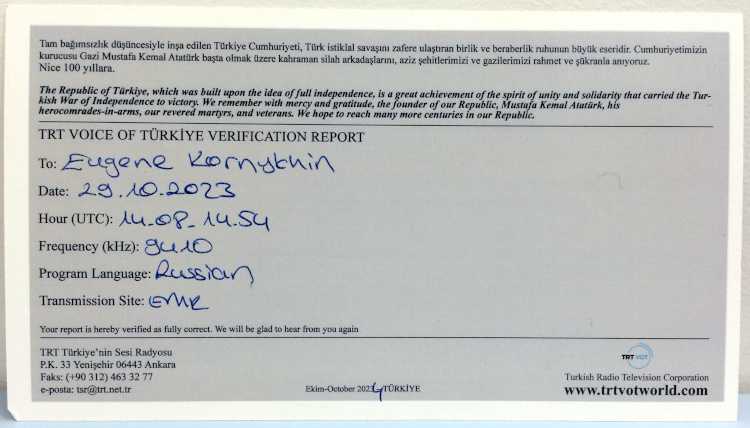 Tam bağımsızlık düşüncesiyle inşa edilen Türkiye Cumhuriyeti, Türk istiklal savaşını zafere ulaştıran birlik ve beraberlik ruhunun büyük eseridir. Cumhuriyetimizin
kurucusu Gazi Mustafa Kemal Atatürk başta olmak üzere kahraman silah arkadaşlarını, aziz şehitlerimizi ve gazilerimizi rahmet ve şükranla anıyoruz.
Nice 100 yıllara.
The Republic of Türkiye, which was built upon the idea of full independence, is a great achievement of the spirit of unity and solidarity that carried the Tur-
kish War of Independence to victory. We remember with mercy and gratitude, the founder of our Republic, Mustafa Kemal Atatürk, his
herocomrades-in-arms, our revered martyrs, and veterans. We hope to reach many more centuries in our Republic.
TRT VOICE OF TÜRKİYE VERIFICATION REPORT
To: Eugene Kornykhin
Date: 29.10.2023
Hour (UTC): 14.08_14.54
Frequency (kHz): 9410
Program Language: Russian
Transmission Site: EMR
Your report is hereby verified as fully correct. We will be glad to hear from you again
TRT Türkiye'nin Sesi Radyosu
P.K. 33 Yenişehir 06443 Ankara
Faks: (+90 312) 463 32 77
e-posta: tsr@trt.net.tr
Ekim-October 2024 TÜRKİYE
TRT VOT
Turkish Radio Television Corporation
www.trtvotworld.com